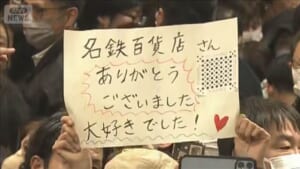 NEWS
名鉄百貨店 さん
ありがとう
ございました
大好きでした!